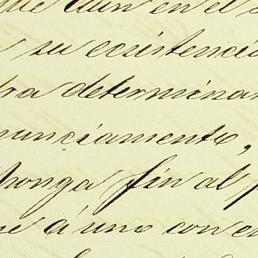 que aun en el
su existencia
determinar
nunciamento,
ponga fin al p
e á uno con e